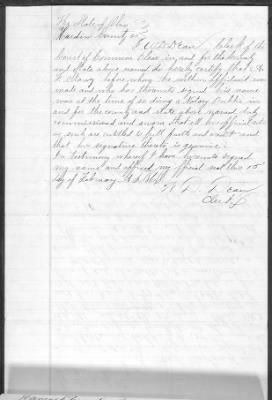 The State of Ohio
Hardin County ss
I, W. D. Dean, Clerk of the
Court of Common Pleas in and for the County
and State above named do hereby certify that A.
F. Stacy before whom the within affidavit was
made and who has thereunto signed his name
was at the time of so doing a Notary Public in
and for the county and state above named duly
commissioned and sworn that all his official acts
as such are entitled to full faith and credit and
that his signature thereto is genuine.
In testimony whereof I have hereunto signed
my name and affixed my official seal this 15
day of February A.D.
W. D. Dean
Clerk